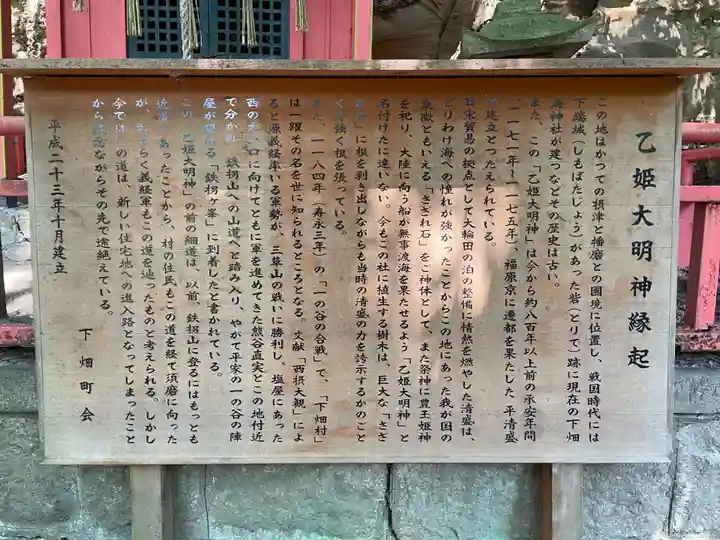 乙姫大明神縁起
この地はかつての摂津と播磨との國境に位置し、戦国時代には
下端城（しもばたじょう）があった砦（とりで）跡に現在の下畑
海神社が建つなどその歴史は古い。
また、この「乙姫大明神」は今から約八百年以上前の承安年間
（一一七一年～一一七五年）、福原京に遷都を果たした 平清盛
が建立とつたえられている。
日宋貿易の拠点として大輪田の泊の整備に情熱を燃やした清盛は、
とりわけ海への憧れが強かったことからこの地にあった我が国の
象徴ともいえる「さざれ石」をご神体として、また祭神に豊玉姫神
を祀り、大陸に向う船が無事渡海を果たせるよう「乙姫大明神」と
名付けたに違いない。今もこの社に植生する樹木は、巨大な「さざ
れ石」に根を剥き出しながらも当時の清盛の力を誇示するかのごと
く力強く根を張っている。
また、一一八四年（寿永三年）の「一の谷の合戦」で、「下畑村」
は一躍その名を世に知られるところとなる。文献「西摂大観」によ
ると源義経率いる軍勢が、三草山の戦いに勝利し、塩屋にあった
西の木戸口に向けてともに軍を進めてきた熊谷直実とこの地付近
で分かれ、鉄拐山への山道へと踏み入り、やがて平家の一の谷の陣
屋が望める「鉄拐ヶ峯」に到着したと書かれている。
この「乙姫大明神」の前の細道は、以前、鉄拐山に登るにはもっとも
近道であったことから、村の住民もこの道を経て須磨に向った
が、おそらく義経軍もこの道を辿ったものと考えられる。しかし
今ではこの道は、新しい住宅地への進入路となってしまったこと
から残念ながらその先で途絶えている。
平成二十三年十月建立
下畑町会